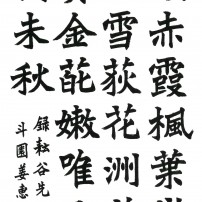 赤霞楓葉
雪荻花洲
金嫩唯
未秋
錄耘谷先
斗園姜惠